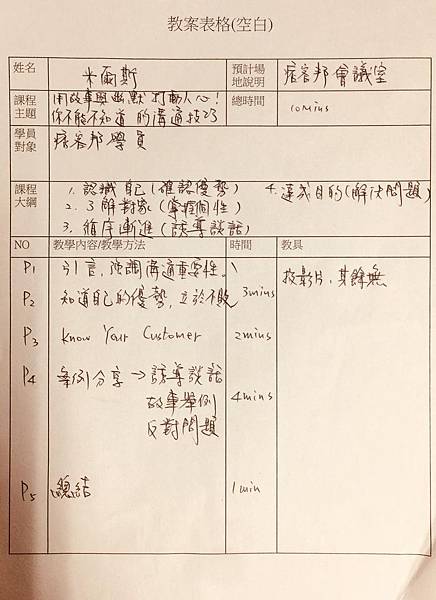 教案表格(空白)
姓名 米爾斯 預計場地說明 痞客邦會議室
課程主題 用故事與幽默打動人心！ 總時間 10mins
你不能不知道的溝通技巧
學員對象 痞客邦學員
課程大綱 1. 認識自己(確認優勢) 4. 達成目的(解決問題)
2. 了解對象(掌握個性)
3. 循序漸進(誘導談話)
NO 教學內容/教學方法 時間 教具
P1 引言，強調溝通重要性。 投影片，其餘無
P2 知道自己的優勢，立於不敗 3mins
P3 Know Your Customer 2mins
P4 案例分享 → 誘導談話
故事舉例 4mins
反對問題
P5 總結 1min